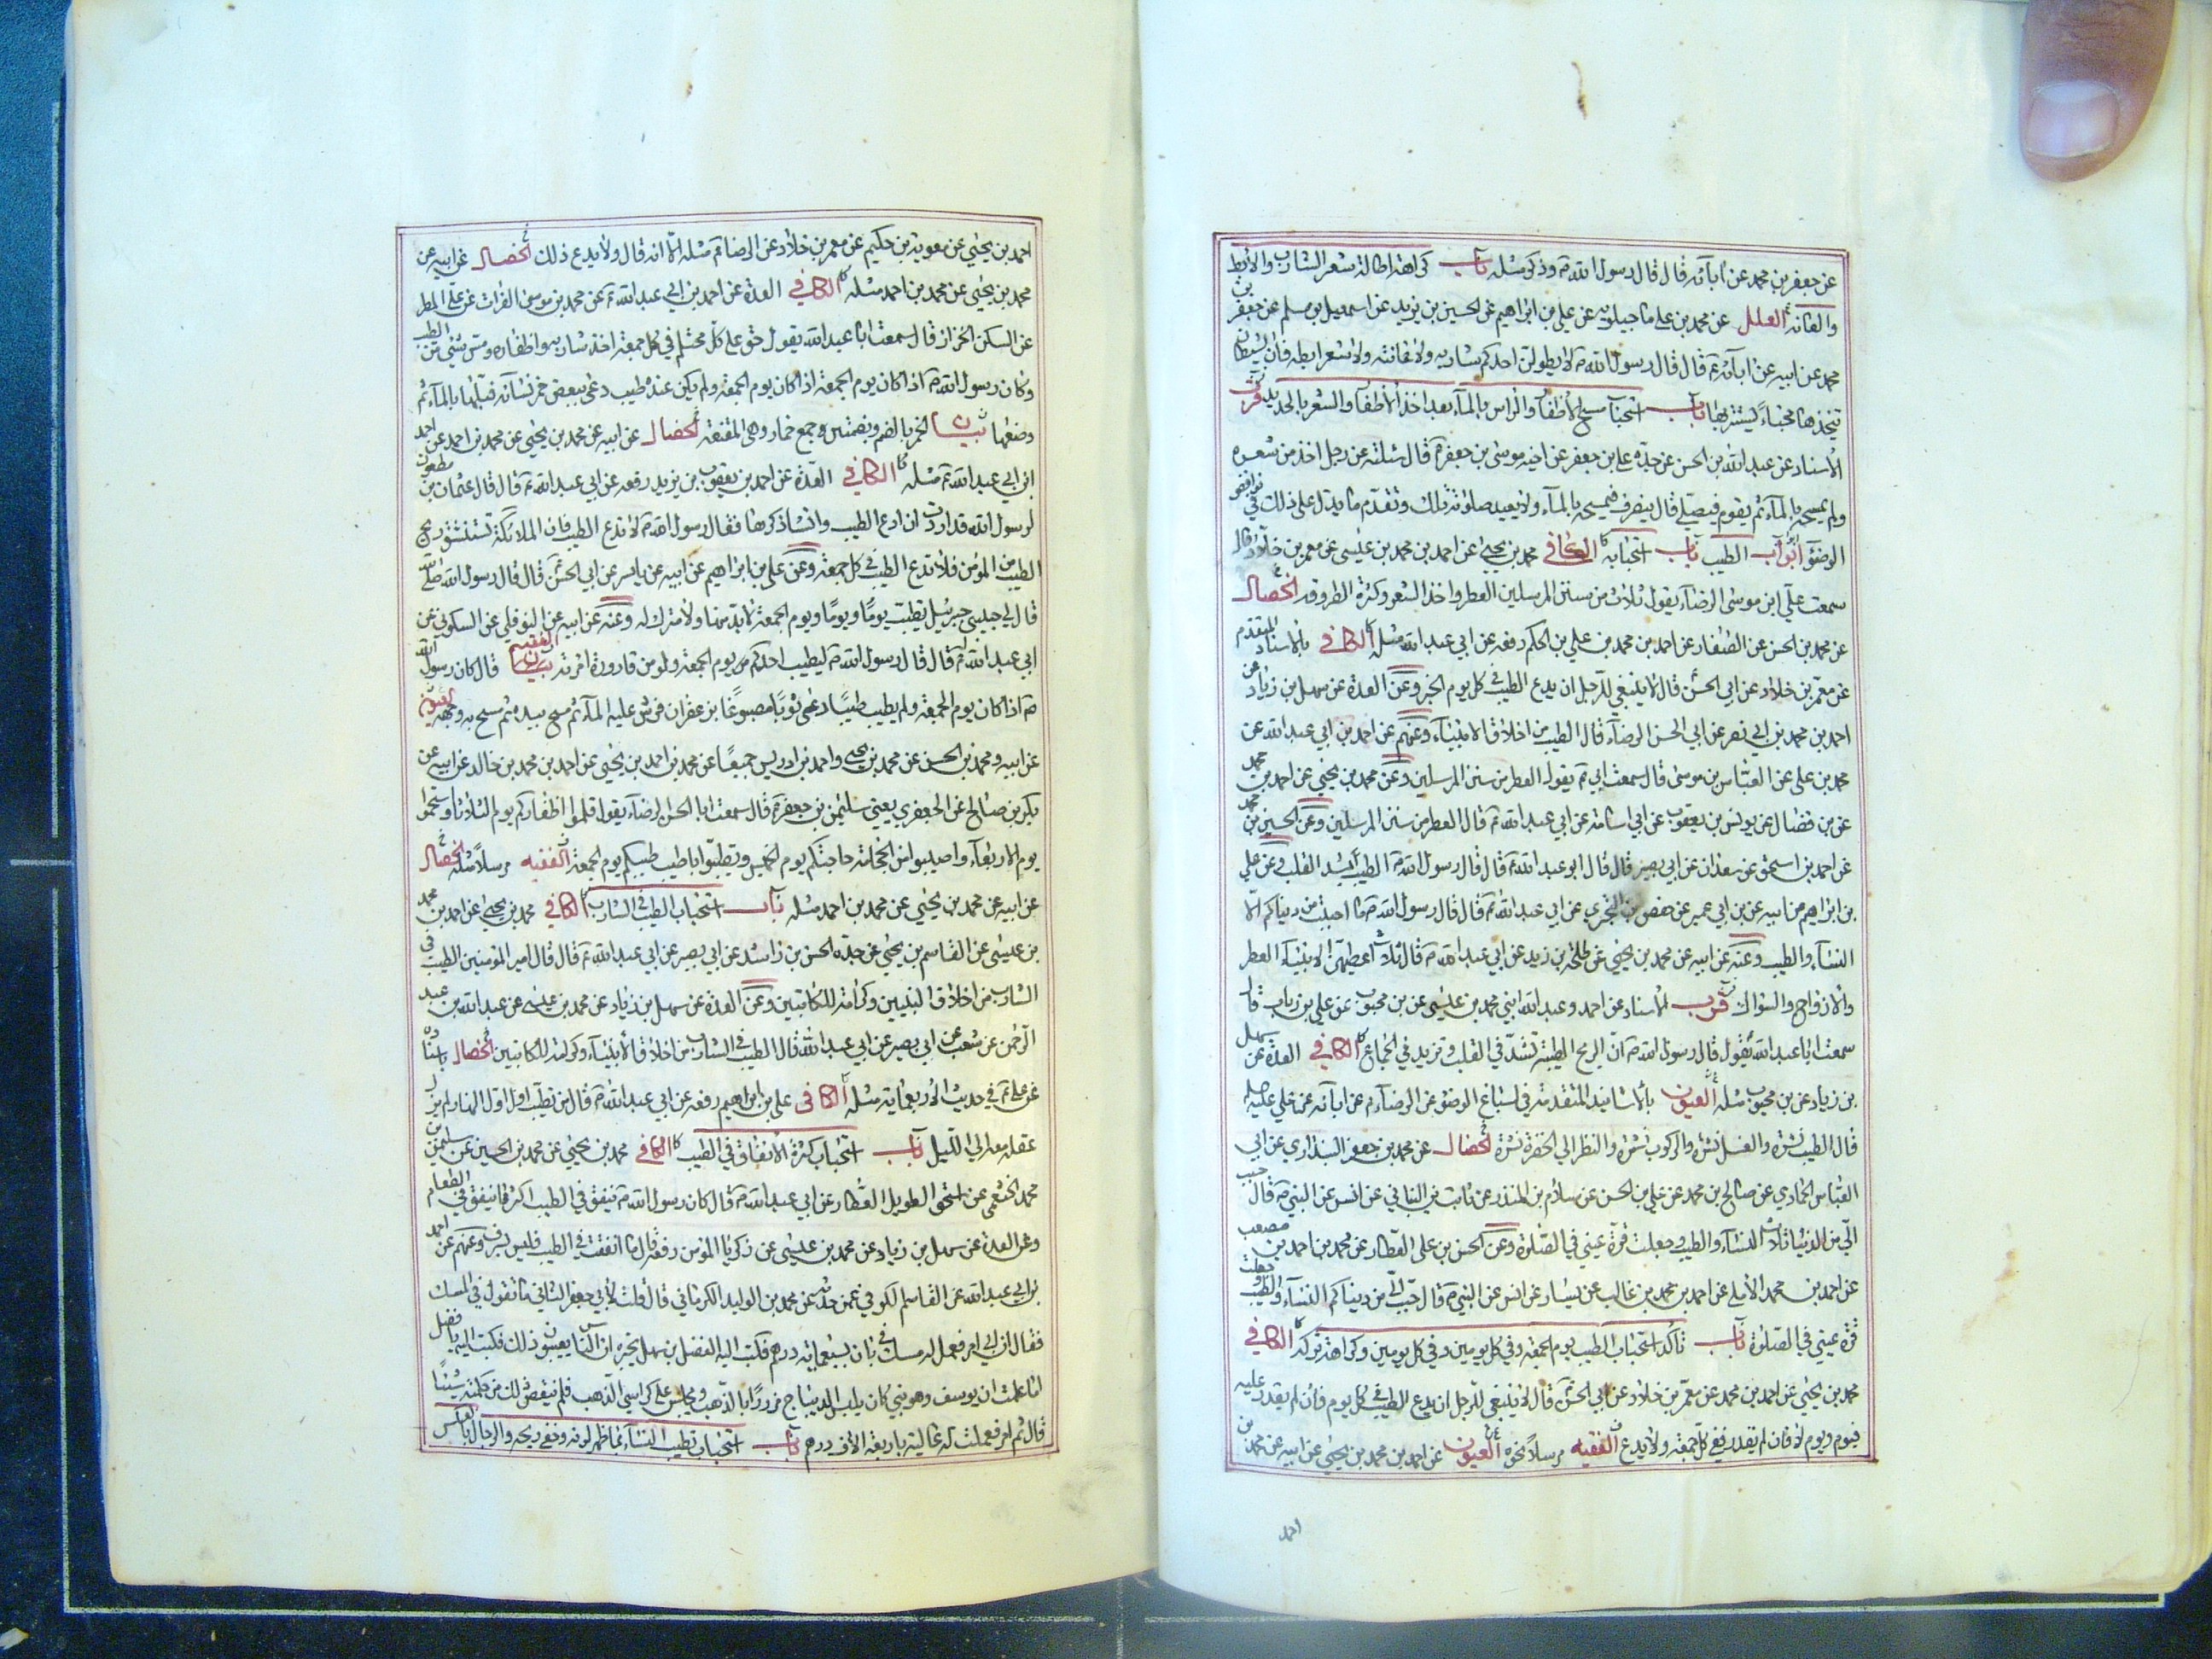 عن جعفر بن محمد عن آبائه قال قال رسول الله ص وذكر مثله باب كراهة اطالة شعر الشارب والابط
والعانة العلل عن محمد بن علي ماجيلويه عن علي بن ابراهيم عن الحسين بن يزيد عن اسمعيل بن مسلم عن جعفر بن
محمد عن ابيه عن ابائه ع قال قال رسول الله ص لا يطولن احدكم شاربه ولا عانته ولا شعر ابطه فان الشيطان
يتخذها مخباء يستتر بها باب استحباب مسح الاظفار والراس بالماء بعد اخذ الاظفار والشعر بالحديد قرب
الاسناد عن عبد الله بن الحسن عن جده علي بن جعفر عن اخيه موسى بن جعفر ع قال سئلته عن رجل اخذ من شعره
ولم يمسحه بالماء ثم يقوم فيصلي قال ينصرف فيمسحه بالماء ولا يعيد صلوته تلك وتقدم ما يدل على ذلك في نواقض
الوضوء ابواب الطيب باب استحبابه الكافي محمد بن يحيى عن احمد بن محمد بن عيسى عن معمر بن خلاد قال
سمعت علي ابن موسى الرضا ع يقول ثلاث من سنن المرسلين العطر واخذ الشعر وكثرة الطروقة الخصال
عن محمد بن الحسن عن الصفار عن احمد بن محمد بن علي بن الحكم رفعه عن ابي عبد الله مثله الكافي بالاسناد المتقدم
عن معمر بن خلاد عن ابي الحسن قال لا ينبغي للرجل ان يدع الطيب في كل يوم الخبر وعن العدة عن سهل بن زياد عن
احمد بن محمد بن ابي نصر عن ابي الحسن الرضا ع قال الطيب من اخلاق الانبياء وعنهم عن احمد بن ابي عبد الله عن
محمد بن علي عن العباس بن موسى قال سمعت ابي ع يقول العطر من سنن المرسلين وعن محمد بن يحيى عن احمد بن محمد
عن بن فضال عن يونس بن يعقوب عن ابي اسامة عن ابي عبد الله ع قال العطر من سنن المرسلين وعن الحسين بن محمد
عن احمد بن اسحق عن سعدان عن ابي بصير قال قال ابو عبد الله ع قال قال رسول الله ص الطيب يشد القلب وعن علي
بن ابراهيم عن ابيه عن بن ابي عمير عن حفص بن البختري عن ابي عبد الله ع قال قال رسول الله ص ما احببت من دنياكم الا
النساء والطيب وعنه عن ابيه عن محمد بن يحيى عن طلحة بن زيد عن ابي عبد الله ع قال ثلاث اعطيهن الانبياء العطر
والازواج والسواك قرب الاسناد عن احمد وعبد الله ابني محمد بن عيسى عن بن محبوب عن علي بن رئاب قال
سمعت ابا عبد الله يقول قال رسول الله ص ان الريح الطيبة تشد القلب وتزيد في الجماع الكافي العدة عن سهل
بن زياد عن بن محبوب مثله العيون بالاسانيد المتقدمة في اسباغ الوضوء عن الرضا ع عن ابائه عن علي عليهم
قال الطيب نشرة والغسل نشرة والركوب نشرة والنظر الى الخضرة نشرة الخصال عن محمد بن جعفر البنداري عن ابي
العباس الحمادي عن صالح بن محمد عن علي بن الحسن عن سلام بن المنذر عن ثابت البناني عن انس عن النبي ص قال حبب
الي من الدنيا ثلاث النساء والطيب وجعلت قرة عيني في الصلوة وعن الحسن بن علي العطار عن محمد بن احمد بن مصعب
عن احمد بن محمد الاملي عن احمد بن محمد بن غالب عن يسار عن انس عن النبي ص قال حبب الي من دنياكم النساء والطيب وجعلت
قرة عيني في الصلوة باب تأكد استحباب الطيب يوم الجمعة وفي كل يومين وفي كل يومين وكراهة تركه الكافي
محمد بن يحيى عن احمد بن محمد عن معمر بن خلاد عن ابي الحسن قال لا ينبغي للرجل ان يدع الطيب في كل يوم فان لم يقدر عليه
فيوم ويوم لا فان لم يقدر ففي كل جمعة ولا يدع الفقيه مرسلا نحوه العيون عن احمد بن محمد بن يحيى عن ابيه عن محمد بن
احمد
احمد بن يحيى عن معوية بن حكيم عن معمر بن خلاد عن الرضا ع مثله الا انه قال ولا يدع ذلك الخصال عن ابيه عن
محمد بن يحيى عن محمد بن احمد مثله الكافي العدة عن احمد بن ابي عبد الله ع عن محمد بن موسى الفرات عن علي المطر
عن السكن الخزاز قال سمعت ابا عبد الله يقول حق على كل محتلم في كل جمعة اخذ شاربه واظفاره ومس شيء من الطيب
وكان رسول الله ص اذا كان يوم الجمعة اذا كان يوم الجمعة ولم يكن عنده طيب دعى ببعض خمر نسائه فبلها بالماء ثم
وضعها بيان الخمر بالضم وبضمتين جمع خمار وهي المقنعة الخصال عن ابيه عن محمد بن يحيى عن محمد بن احمد عن احمد
ابن ابي عبد الله ع مثله الكافي العدة عن احمد بن يعقوب بن يزيد رفعه عن ابي عبد الله ع قال قال عثمان بن مظعون
لرسول الله قد اردت ان ادع الطيب واشياء ذكرها فقال رسول الله ص لا تدع الطيب فان الملائكة تستنشق ريح
الطيب من المؤمن فلا تدع الطيب في كل جمعة وعن علي بن ابراهيم عن ابيه عن ياسر عن ابي الحسن قال قال رسول الله صلى الله
قال لي حبيبي جبرئيل تطيب يوما ويوما ويوم الجمعة لا بد منها ولا مترك له وعنه عن ابيه عن النوفلي عن السكوني عن
ابي عبد الله ع قال قال رسول الله ص ليطيب احدكم من يوم الجمعة ولو من قارورة امرئته الفقيه قال كان رسول الله
ص اذا كان يوم الجمعة ولم يطيب طيبا دعى ثوبا مصبوغا بزعفران فرش عليه الماء ثم مسح بيده ثم مسح به وجهه العيون
عن ابيه ومحمد بن الحسن عن محمد بن يحيى واحمد بن ادريس جميعا عن محمد بن احمد بن يحيى عن احمد بن محمد بن خالد عن ابيه عن
بكر بن صالح عن الجعفري يعني سليمن بن جعفر ع قال سمعت ابا الحسن الرضا ع يقول قلموا اظفاركم يوم الثلاثا واستحموا
يوم الاربعاء واصيبوا من الحجامة حاجتكم يوم الخميس وتطيبوا باطيب طيبكم يوم الجمعة الفقيه مرسلا مثله الخصال
عن ابيه عن محمد بن يحيى عن محمد بن احمد مثله باب استحباب الطيب في الشارب الكافي محمد بن يحيى عن احمد بن محمد
بن عيسى عن القاسم بن يحيى عن جده الحسن بن راشد عن ابي بصير عن ابي عبد الله ع قال قال امير المؤمنين الطيب في
الشارب من اخلاق النبيين وكرامة للكاتبين وعن العدة عن سهل بن زياد عن محمد بن عيسى عن عبد الله بن عبد
الرحمن عن شعيب عن ابي بصير عن ابي عبد الله قال الطيب في الشارب من اخلاق الانبياء وكرامة للكاتبين الخصال باسناده
عن علي ع في حديث الاربعمائة مثله الكافي علي بن ابراهيم رفعه عن ابي عبد الله ع قال من تطيب اول النهار لم يزل
عقله معه الى الليل باب استحباب كثرة الانفاق في الطيب الكافي محمد بن يحيى عن محمد بن الحسين عن سليمن بن
محمد الخثعمي عن اسحق الطويل العطار عن ابي عبد الله ع قال كان رسول الله ص ينفق في الطيب اكثر مما ينفق في الطعام
وعن العدة عن سهل بن زياد عن محمد بن عيسى عن زكريا المؤمن رفعه قال ما انفقت في الطيب فليس بسرف وعنهم عن احمد
بن ابي عبد الله عن القاسم الكوفي عمن حدثه عن محمد بن الوليد الكرماني قال قلت لابي جعفر الثاني ما تقول في المسك
فقال ان ابي امر فعمل له مسك في بان بسبعمائة درهم فكتب اليه الفضل بن سهل يخبره ان الناس يعيبون ذلك فكتب اليه يا فضل
اما علمت ان يوسف وهو نبي كان يلبس الديباج مزررا بالذهب ويجلس على كراسي الذهب فلم ينقص ذلك من حكمته شيئا
قال ثم امر فعملت له غالية باربعة الاف درهم باب استحباب تطيب النساء بما ظهر لونه وخفي ريحه والرجال بالعكس